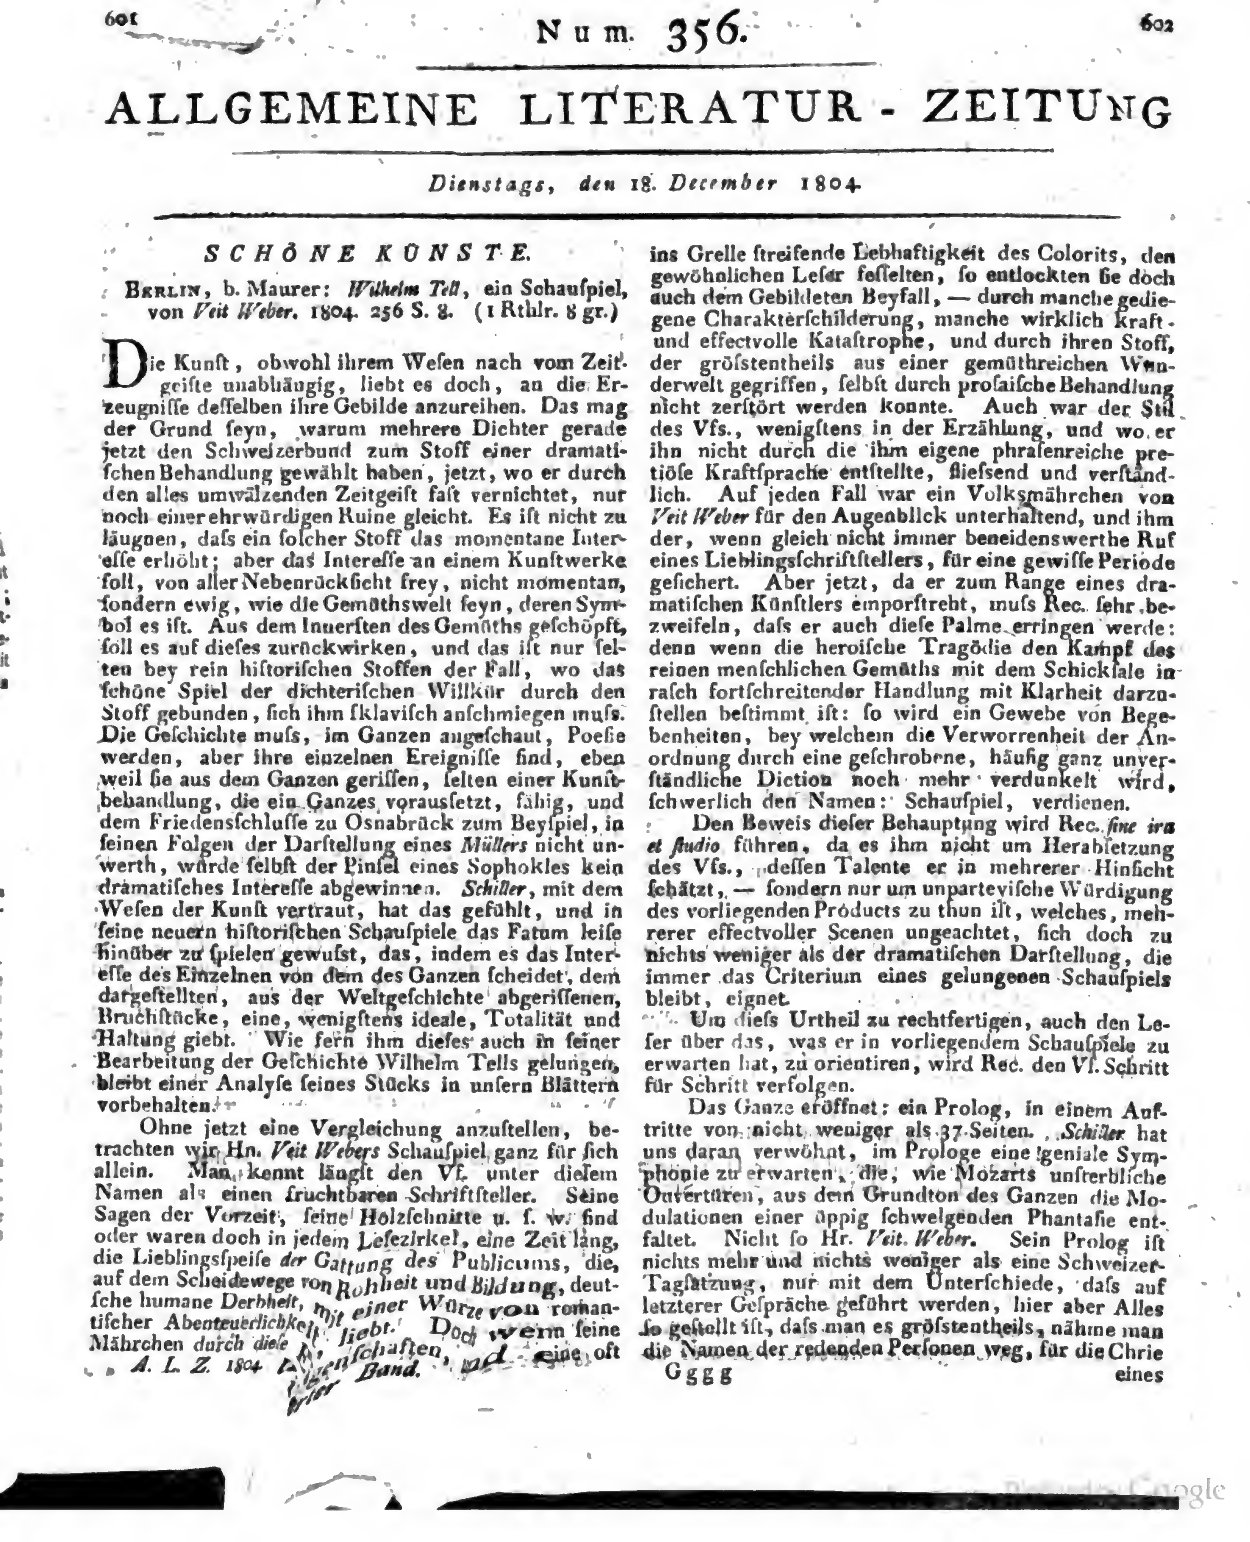 601
Num. 356.
602
ALLGEMEINE LITERATUR - ZEITUNG
Dienstags, den 18. December 1804.
SCHÖNE KÜNSTE.
BERLIN, b. Maurer: Wilhelm Tell, ein Schauſpiel,
von Veit Weber. 1804. 256 S. 8. (1 Rthlr. 8 gr.)
Die Kunſt, obwohl ihrem Weſen nach vom Zeit-
geiſte unabhängig, liebt es doch, an die Er-
zeugniſſe deſſelben ihre Gebilde anzureihen. Das mag
der Grund ſeyn, warum mehrere Dichter gerade
jetzt den Schweizerbund zum Stoff einer dramati-
ſchen Behandlung gewählt haben, jetzt, wo er durch
den alles umwälzenden Zeitgeiſt faſt vernichtet, nur
noch einer ehrwürdigen Ruine gleicht. Es iſt nicht zu
läugnen, daſs ein ſolcher Stoff das momentane Inter-
eſſe erhöht; aber das Intereſſe an einem Kunſtwerke
ſoll, von aller Nebenrückſicht frey, nicht momentan,
ſondern ewig, wie die Gemüthswelt ſeyn, deren Sym-
bol es iſt. Aus dem Innerſten des Gemüths geſchöpft,
ſoll es auf dieſes zurückwirken, und das iſt nur ſel-
ten bey rein hiſtoriſchen Stoffen der Fall, wo das
ſchöne Spiel der dichteriſchen Willkür durch den
Stoff gebunden, ſich ihm ſklaviſch anſchmiegen muſs.
Die Geſchichte muſs, im Ganzen angeſchaut, Poeſie
werden, aber ihre einzelnen Ereigniſſe ſind, eben
weil ſie aus dem Ganzen geriſſen, ſelten einer Kunſt-
behandlung, die ein Ganzes vorausſetzt, fähig, und
dem Friedensſchluſſe zu Osnabrück zum Beyſpiel, in
ſeinen Folgen der Darſtellung eines Müllers nicht un-
werth, würde ſelbſt der Pinſel eines Sophokles kein
dramatiſches Intereſſe abgewinnen. Schiller, mit dem
Weſen der Kunſt vertraut, hat das gefühlt, und in
ſeine neuern hiſtoriſchen Schauſpiele das Fatum leiſe
hinüber zu ſpielen gewuſst, das, indem es das Inter-
eſſe des Einzelnen von dem des Ganzen ſcheidet, dem
dargeſtellten, aus der Weltgeſchichte abgeriſſenen,
Bruchſtücke, eine, wenigſtens ideale, Totalität und
Haltung giebt. Wie fern ihm dieſes auch in ſeiner
Bearbeitung der Geſchichte Wilhelm Tells gelungen,
bleibt einer Analyſe ſeines Stücks in unſern Blättern
vorbehalten.
Ohne jetzt eine Vergleichung anzuſtellen, be-
trachten wir Hn. Veit Webers Schauſpiel ganz für ſich
allein. Man kennt längſt den Vf. unter dieſem
Namen als einen fruchtbaren Schriftſteller. Seine
Sagen der Vorzeit, ſeine Holzſchnitte u. ſ. w. ſind
oder waren doch in jedem Leſezirkel, eine Zeit lang,
die Lieblingsſpeiſe der Gattung des Publicums, die,
auf dem Scheidewege von Rohheit und Bildung, deut-
ſche humane Derbheit, mit einer Würze von roman-
tiſcher Abenteuerlichkeit liebt. Doch wenn ſeine
Mährchen durch dieſe Eigenſchaften, und eine oft
A. L. Z. 1804. Vierter Band.
ins Grelle ſtreifende Lebhaftigkeit des Colorits, den
gewöhnlichen Leſer feſſelten, ſo entlockten ſie doch
auch dem Gebildeten Beyfall, — durch manche gedie-
gene Charakterſchilderung, manche wirklich kraft-
und effectvolle Kataſtrophe, und durch ihren Stoff,
der gröſstentheils aus einer gemüthreichen Wun-
derwelt gegriffen, ſelbſt durch proſaiſche Behandlung
nicht zerſtört werden konnte. Auch war der Stil
des Vfs., wenigſtens in der Erzählung, und wo er
ihn nicht durch die ihm eigene phraſenreiche pre-
tiöſe Kraftſprache entſtellte, flieſsend und verſtänd-
lich. Auf jeden Fall war ein Volksmährchen von
Veit Weber für den Augenblick unterhaltend, und ihm
der, wenn gleich nicht immer beneidenswerthe Ruf
eines Lieblingsſchriftſtellers, für eine gewiſſe Periode
geſichert. Aber jetzt, da er zum Range eines dra-
matiſchen Künſtlers emporſtrebt, muſs Rec. ſehr be-
zweifeln, daſs er auch dieſe Palme erringen werde:
denn wenn die heroiſche Tragödie den Kampf des
reinen menſchlichen Gemüths mit dem Schickſale in
raſch fortſchreitender Handlung mit Klarheit darzu-
ſtellen beſtimmt iſt: ſo wird ein Gewebe von Bege-
benheiten, bey welchem die Verworrenheit der An-
ordnung durch eine geſchrobene, häufig ganz unver-
ſtändliche Diction noch mehr verdunkelt wird,
ſchwerlich den Namen: Schauſpiel, verdienen.
Den Beweis dieſer Behauptung wird Rec. ſine ira
et ſtudio führen, da es ihm nicht um Herabſetzung
des Vfs., deſſen Talente er in mehrerer Hinſicht
ſchätzt, — ſondern nur um unparteyiſche Würdigung
des vorliegenden Products zu thun iſt, welches, meh-
rerer effectvoller Scenen ungeachtet, ſich doch zu
nichts weniger als der dramatiſchen Darſtellung, die
immer das Criterium eines gelungenen Schauſpiels
bleibt, eignet.
Um dieſs Urtheil zu rechtfertigen, auch den Le-
ſer über das, was er in vorliegendem Schauſpiele zu
erwarten hat, zu orientiren, wird Rec. den Vf. Schritt
für Schritt verfolgen.
Das Ganze eröffnet: ein Prolog, in einem Auf-
tritte von nicht weniger als 37 Seiten. Schiller hat
uns daran verwöhnt, im Prologe eine geniale Sym-
phonie zu erwarten, die, wie Mozarts unſterbliche
Ouvertüren, aus dem Grundton des Ganzen die Mo-
dulationen einer üppig ſchwelgenden Phantaſie ent-
faltet. Nicht ſo Hr. Veit Weber. Sein Prolog iſt
nichts mehr und nichts weniger als eine Schweizer-
Tagſatzung, nur mit dem Unterſchiede, daſs auf
letzterer Geſpräche geführt werden, hier aber Alles
ſo geſtellt iſt, daſs man es gröſstentheils, nähme man
die Namen der redenden Perſonen weg, für die Chrie
Gggg
eines
Google